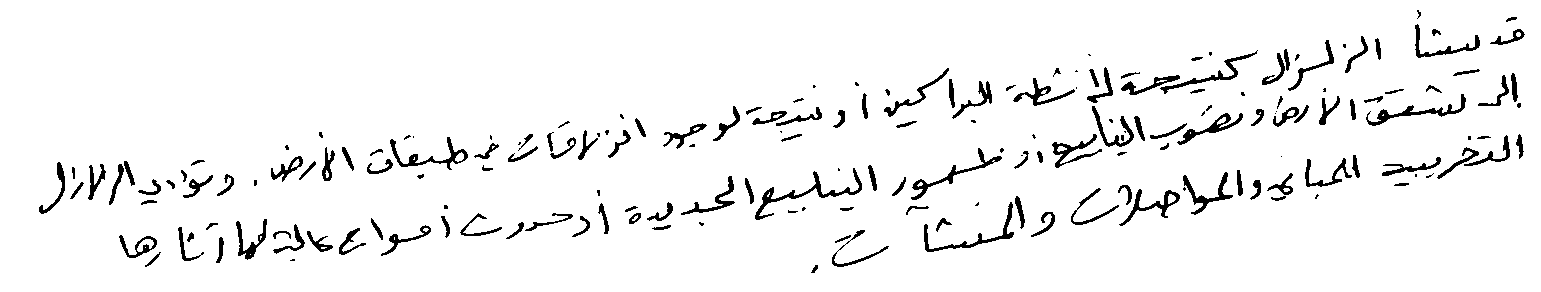 قد ينشأ الزلزال كنتيجة لأنشطة البراكين أو نتيجة لوجود انزلاقات في طبقات الأرض. وتؤدي الزلازل
إلى تشقق الأرض ونضوب الينابيع أو ظهور الينابيع الجديدة أو حدوث أمواج عالية لها آثارها
التخريبية للمباني والمواصلات والمنشآت.